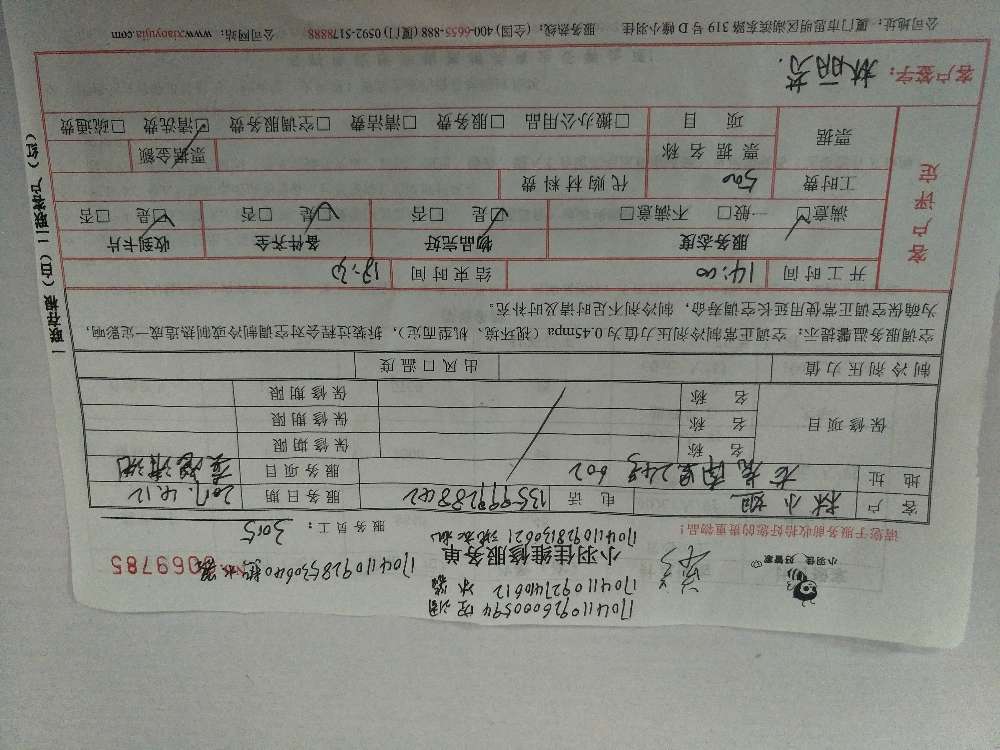 170411096000594 空调
1704110927410612 冰箱
小羽佳 好管家
小羽佳维修服务单
0069785
请您于服务前收拾好您的贵重物品!
服务员工: 3015
客户 林小姐 电话 服务日期 2017.4.12
地址 602 服务项目 清洗
保修项目 名称 保修期限
名称 保修期限
名称 保修期限
制冷剂压力值 出风口温度
空调服务温馨提示:空调正常制冷剂压力值为0.45mpa(视环境、机型而定),拆装过程会对空调制冷或制热造成一定影响,
为确保空调正常使用延长空调寿命,制冷剂不足时请及时补充。
客户评定
开工时间 14:00 结束时间
服务态度 物品完好 备件齐全 收到卡片
满意☑ 一般□ 不满意□ ☑是 □否 ☑是 □否 ☑是 □否
工时费 500 代购材料费
票据 票据名称 票据金额
项目 □搬办公用品 □服务费 □清洁费 □空调服务费 ☑清洗费 □疏通费
客户签字: 林丽芬
公司地址:厦门市思明区湖滨东路319号D幢小羽佳 服务热线:(全国)400-6655-888(厦门)0592-5178888 公司网站:www.xiaoyujia.com
一联存根(白)二联客户(红)